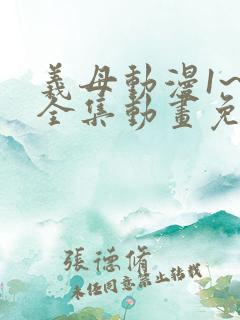 義母動漫1~
全集動畫免
張德脩
未经同意禁止转载